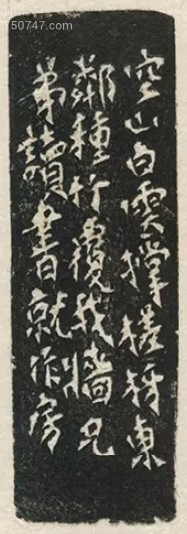 50747.com
空山白雲撑槎枒東
鄰種竹覆我牆兄
弟讀書就作房